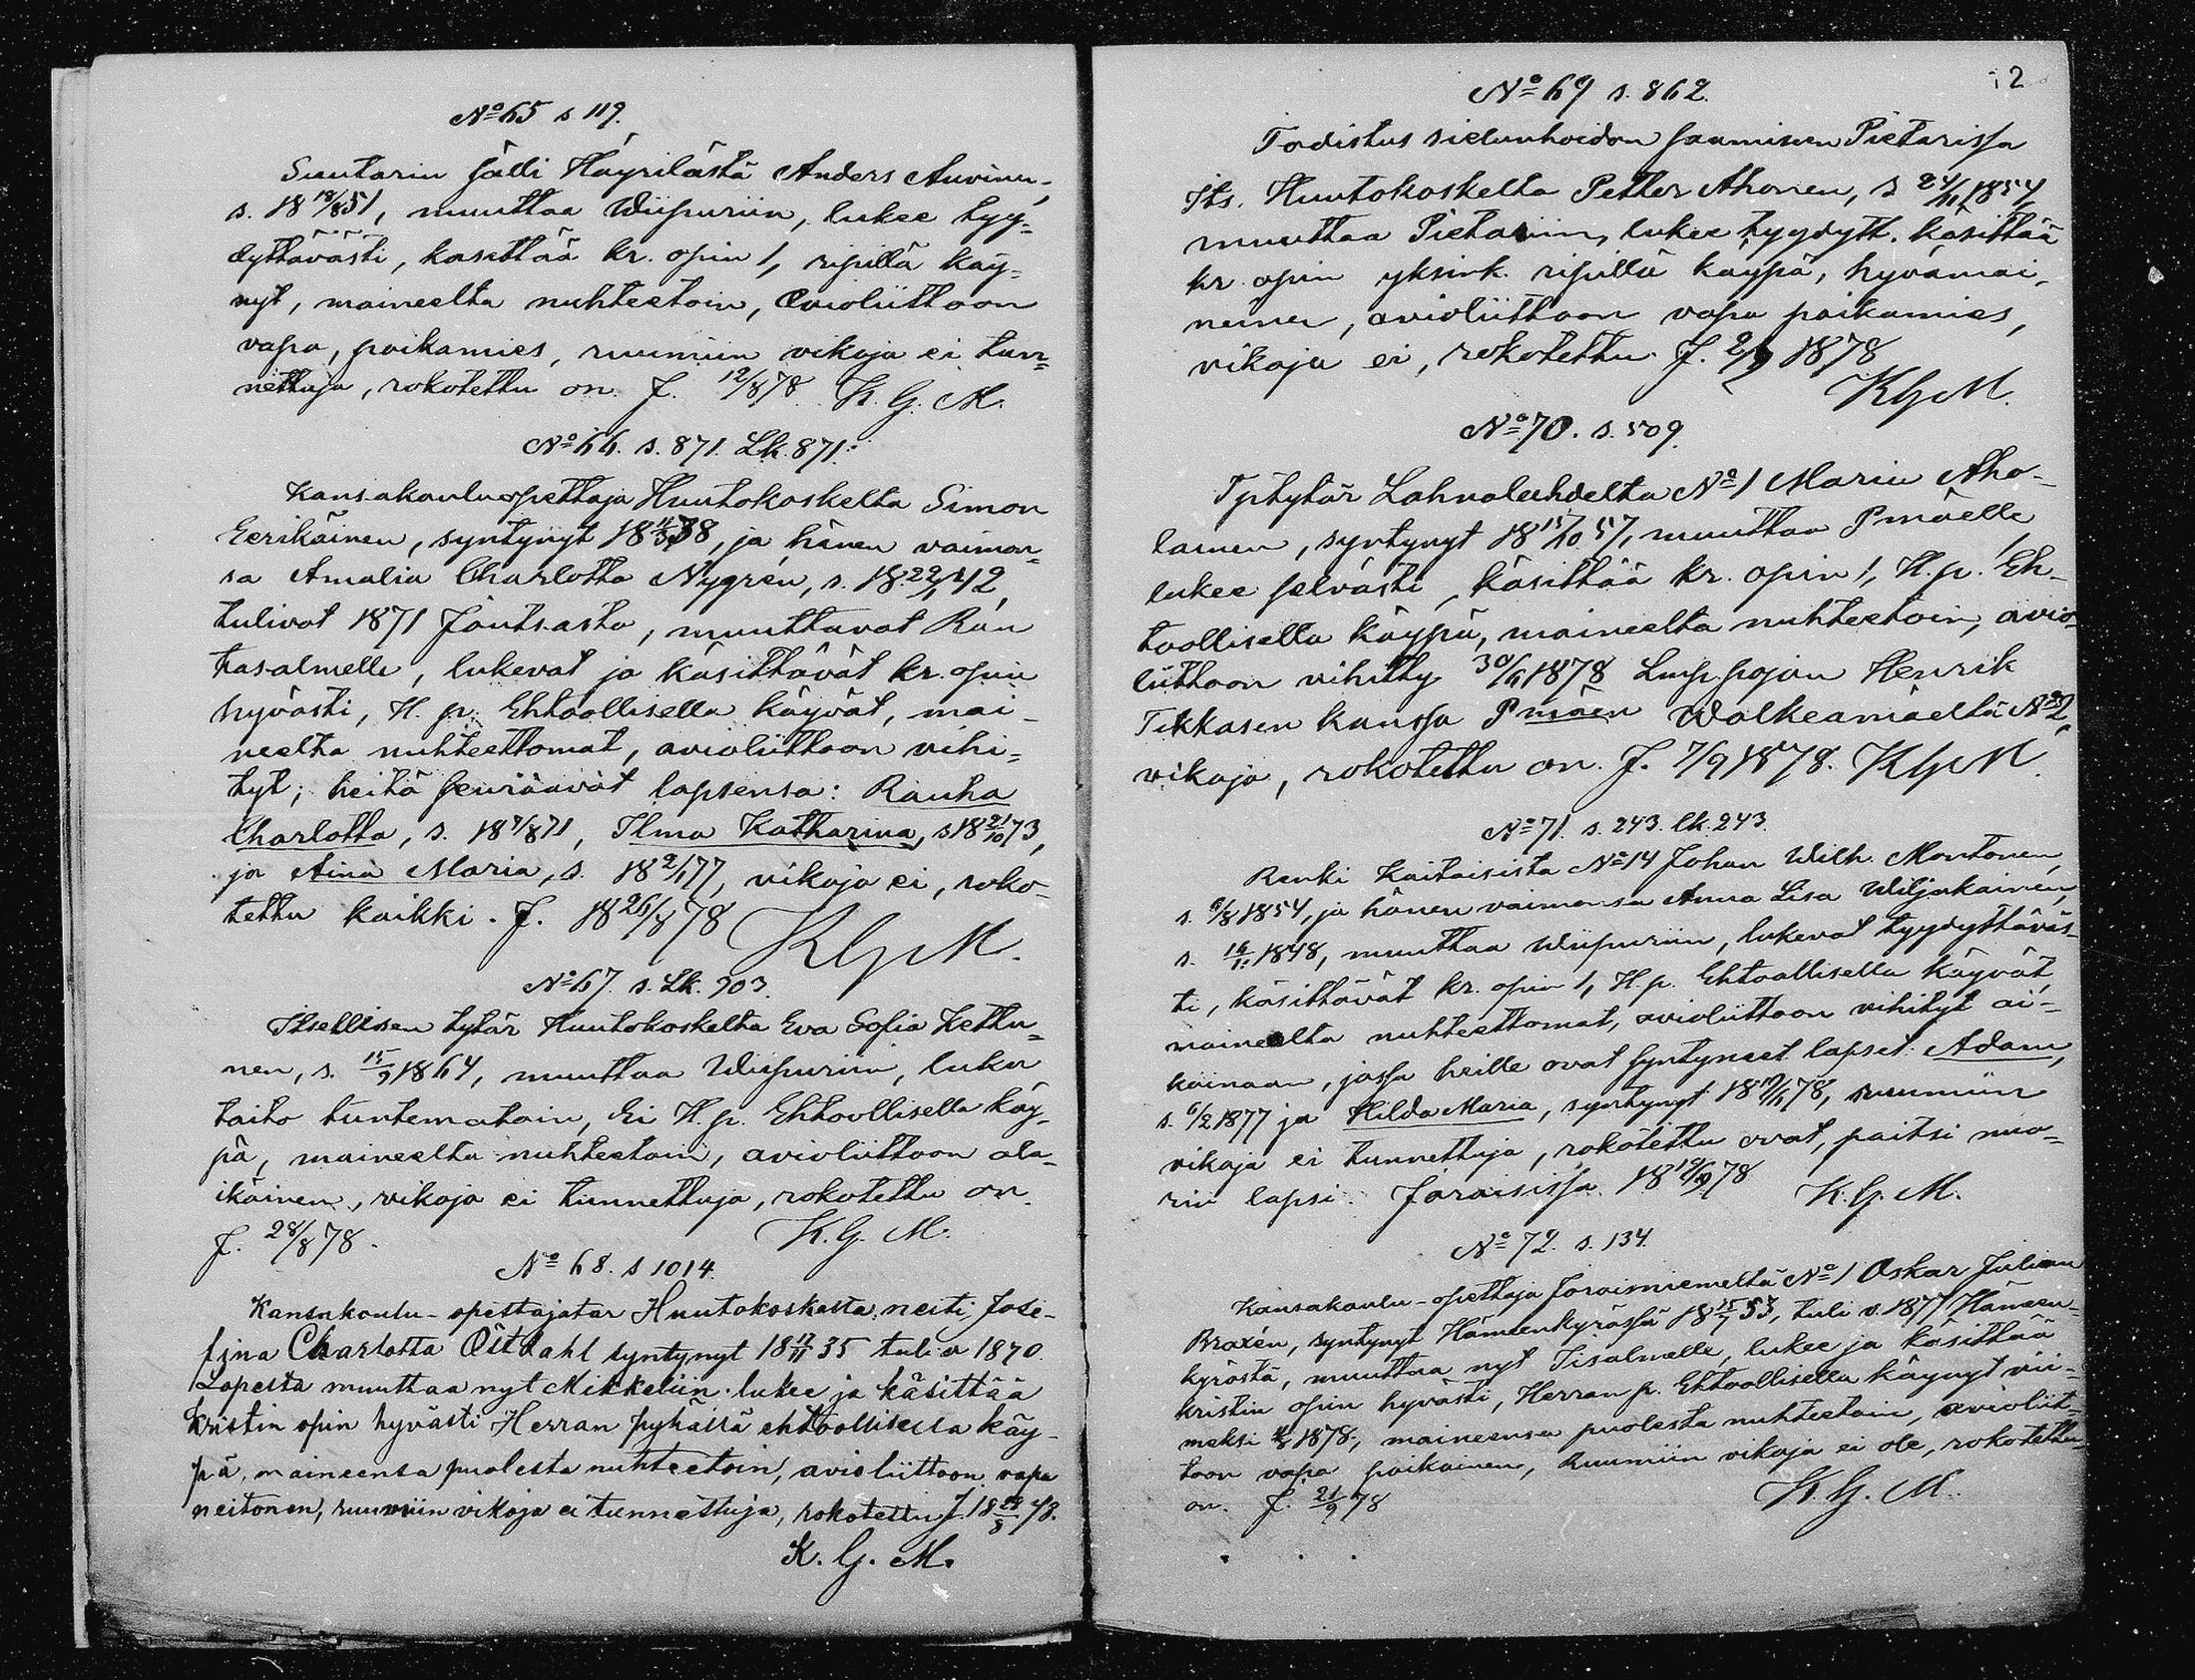 No 65 s. 119.
Suutarin sälli Häyrilästä Anders Auvinen,
s. 18 18/8 51, muuttaa Wiipuriin, lukee tyy-
dyttävästi, käsittää kr. opin 1, ripillä käy-
nyt, maineelta nuhteetoin, avioliittoon
vapa, poikamies, ruumiin vikoja ei tun-
nettuja, rokotettu on. J. 12/8 78 K. G. M.
No 66. s. 871. Lk. 871.
Kansakouluopettaja Huutokoskelta Simon
Eerikäinen, syntynyt 18 38, ja hänen vaimon-
sa Amalia Charlotta Nygrén, s. 18 42,
tulivat 1871 Joutsasta, muuttavat Ran
tasalmelle, lukevat ja käsittävät kr. opin
hyvästi, H. p. Ehtoollisella käyvät, mai-
neelta nuhteettomat, avioliittoon vihi-
tyt; heitä seuraavat lapsensa: Rauha
Charlotta, s. 18 7/8 71, Ilma Katharina, s 18 21/10 73,
ja Aina Maria, s. 18 2/1 77, vikoja ei, roko-
tettu kaikki. J. 18 26/8 78
KGM.
No 67. s. Lk. 903.
Itsellisen tytär Huutokoskelta Eva Sofia Kettu-
nen, s. 15/9 1864, muuttaa Wiipuriin, luku
taito tuntematoin, Ei H. p. Ehtoollisella käy-
pä, maineelta nuhteetoin, avioliittoon ala-
ikäinen, vikoja ei tunnettuja, rokotettu on.
J. 28/8 78. K. G. M.
No 68. s 1014.
Kansakoulu-opettajatar Huutokoskesta neiti Jose-
fina Charlotta Östdahl syntynyt 18 17/11 35 tuli v 1870
Lopesta muuttaa nyt Mikkeliin. lukee ja käsittää
kristin opin hyvästi Herran pyhällä ehtoollisella käy-
pä, maineensa puolesta nuhteetoin, avioliittoon vapa
neitonen, ruumiin vikoja ei tunnettuja, rokotettu J. 18 28/8 78.
K. G. M.
2
No 69 s. 862.
Todistus sielunhoidon saamiseen Pietarissa
Its. Huutokoskelta Petter Ahonen, s 24/11 1854,
muuttaa Pietariin, lukee tyydytt. käsittää
kr. opin yksink. ripillä käypä, hyvämai-
neinen, avioliittoon vapa poikamies,
vikoja ei, rokotettu. J. 2/9 1878
KGM.
No 70. s. 509.
Tytär Lahnalahdelta No 1 Maria Aho-
lainen, syntynyt 18 15/10 57, muuttaa Pmäelle,
lukee selvästi, käsittää kr. opin 1, H. p. Eh-
toollisella käypä, maineelta nuhteetoin, avio-
liittoon vihitty 30/6 1878 Lmp. pojan Henrik
Tikkasen kanssa Pmäen Walkeamäeltä No 2,
vikoja, rokotettu on. J. 7/9 1878. KGM.
No 71. s. 243. lk. 243.
Renki Kaitaisista No 14 Johan Wilh. Montonen,
s. 6/8 1854, ja hänen vaimonsa Anna Lisa Wiljakainen,
s. 1848, muuttaa Wiipuriin, lukevat tyydyttäväs-
ti, käsittävät kr. opin 1, H. p. Ehtoollisella käyvät,
maineelta nuhteettomat, avioliittoon vihityt ai-
koinaan, jossa heille ovat syntyneet lapset: Adam,
s. 6/2 1877 ja Hilda Maria, syntynyt 18 78, ruumiin
vikoja ei tunnettuja, rokotettu ovat, paitsi nuo-
rin lapsi. Joroisissa 18 78 K. G. M.
No 72. s. 134.
Kansakoulu-opettaja Joroisniemeltä No 1 Oskar Julian
Braxén, syntynyt Hämeenkyrössä 18 53, tuli v. 1877 Hämeen-
kyröstä, muuttaa nyt Iisalmelle, lukee ja käsittää
kristin opin hyvästi, Herran p. Ehtoollisella käynyt vii-
meksi 1878, maineensa puolesta nuhteetoin, avioliit-
toon vapa poikainen, Ruumiin vikoja ei ole, rokotettu
on. J. 21/9 78 K. G. M.